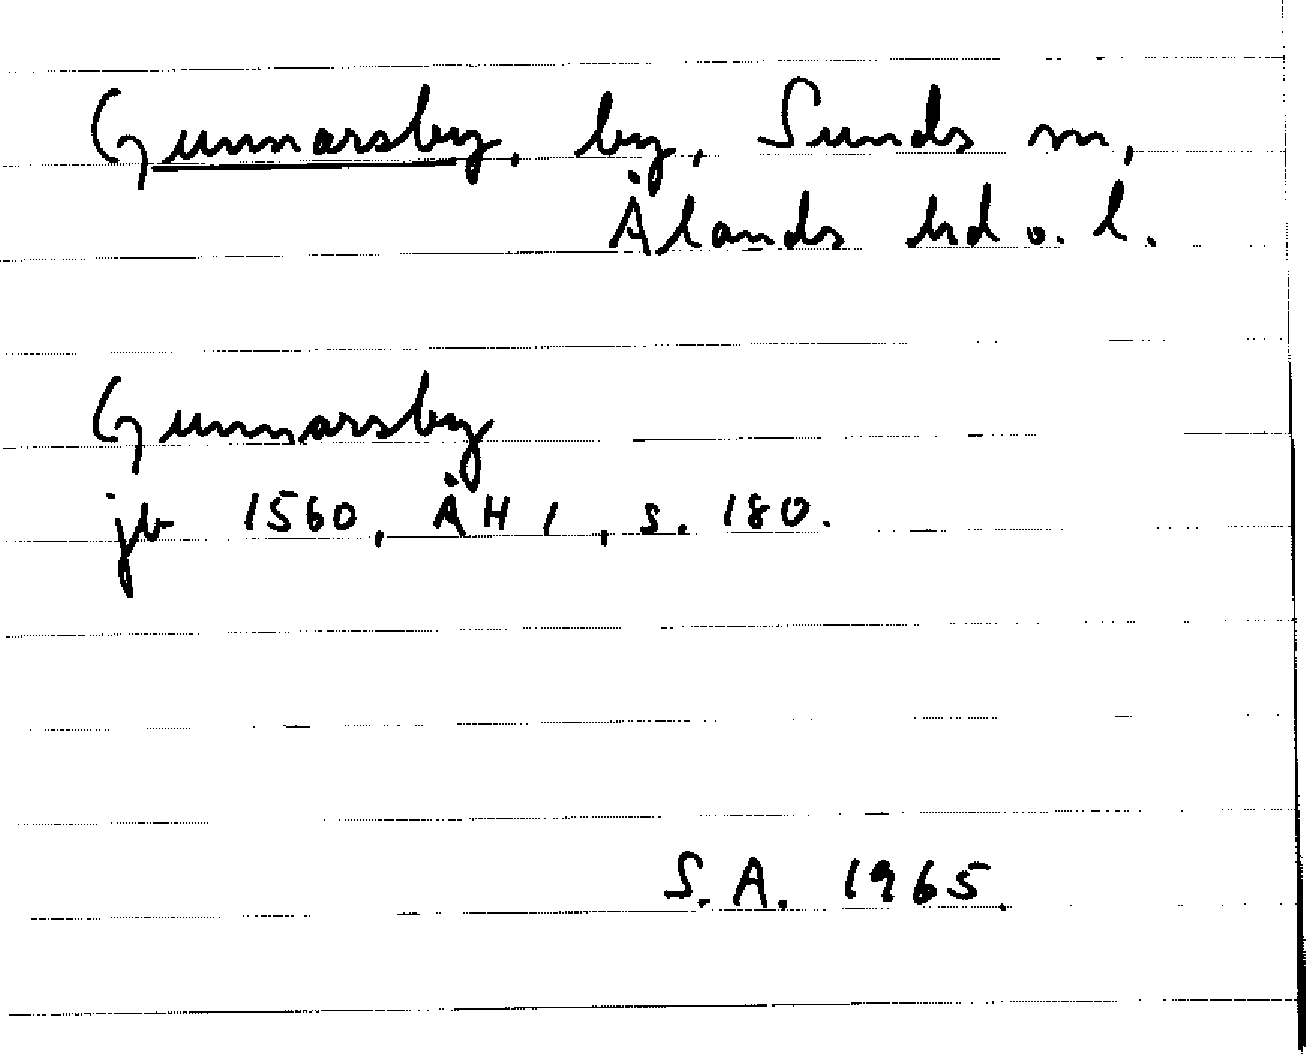 Gunnarsby, by, Sunds sn,
Ålands hd o. l.
Gunnarsby
jb 1560, ÅH 1, s. 180.
S.A. 1965.